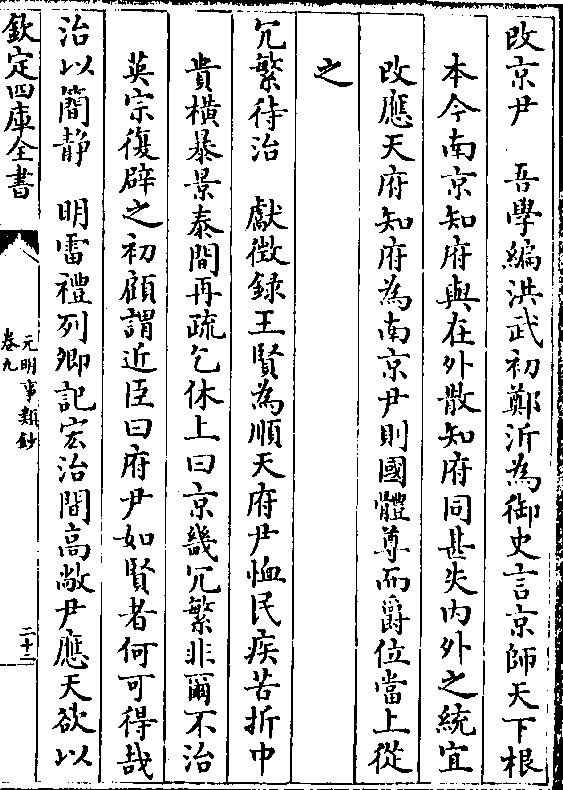 改京尹　吾學編洪武初鄭沂為御史言京師天下根
本今南京知府與在外散知府同甚失內外之統宜
改應天府知府為南京尹則國體尊而爵位當上從
之
冗繁待治　獻徴録王賢為順天府尹恤民疾苦折中
貴橫暴景泰間再疏乞休上曰京畿冗繁非爾不治
英宗復辟之初顧謂近臣曰府尹如賢者何可得哉
治以簡静　明雷禮列卿記宏治間高敞尹應天欲以
欽定四庫全書
元明事類鈔
卷九
二十二